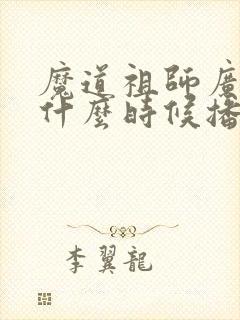 魔道祖師廣
什麼時候播
李翼龍